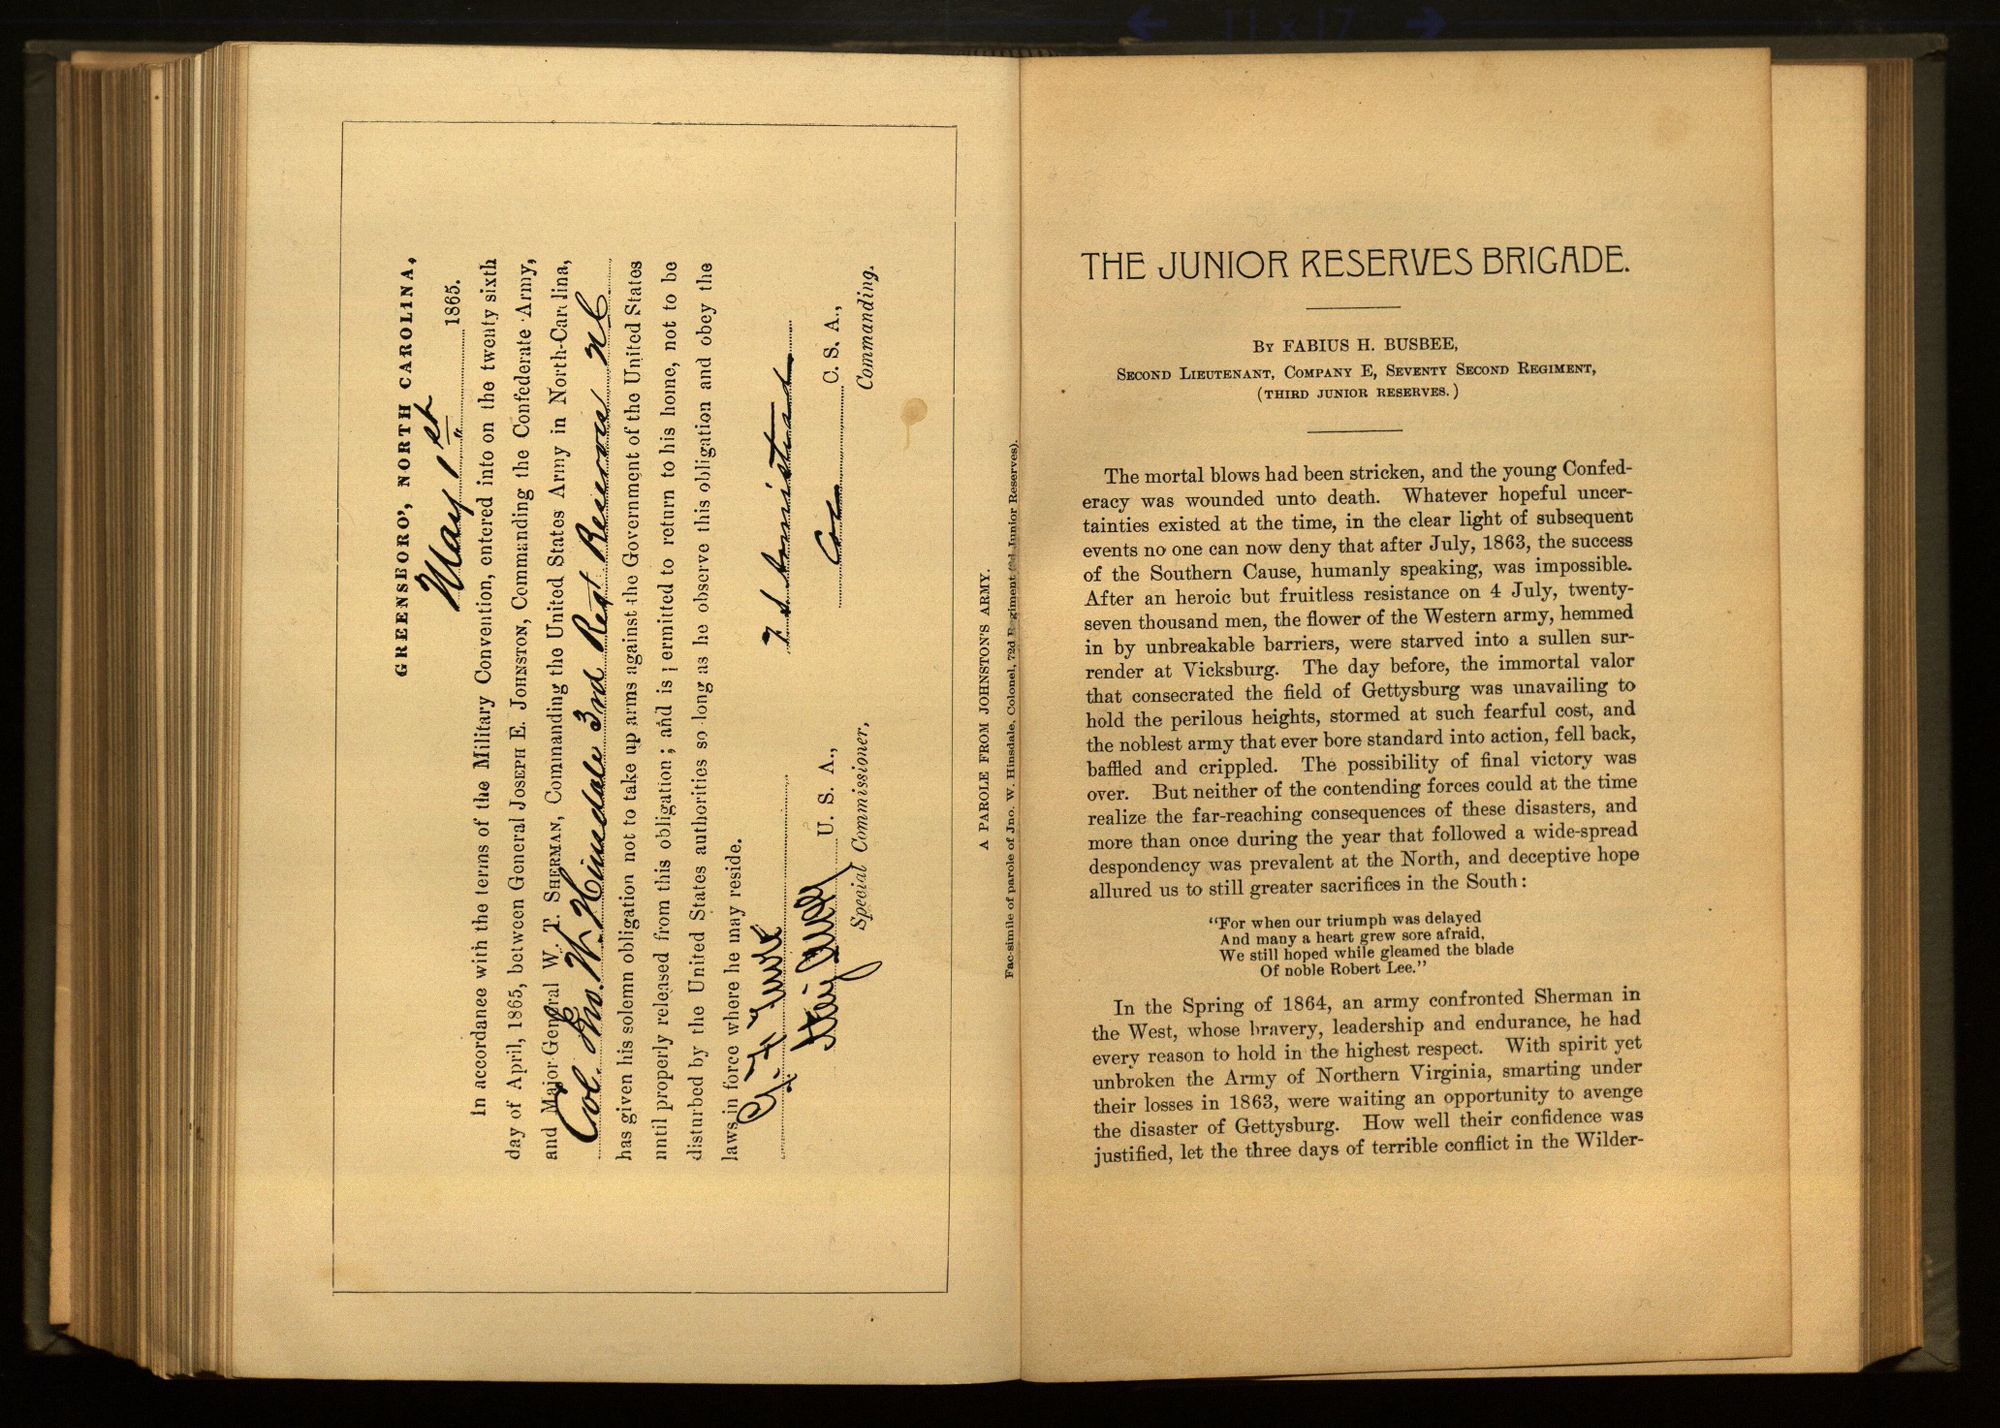 GREENSBORO', NORTH CAROLINA,
May 1st 1865.
In accordance with the terms of the Military Convention, entered into on the twenty sixth
day of April, 1865, between General JOSEPH E. JOHNSTON, Commanding the Confederate Army,
and Major General W. T. SHERMAN, Commanding the United States Army in North-Carolina,
Col. Jno. W. Hinsdale 3rd Regt Reserves N C
has given his solemn obligation not to take up arms against the Government of the United States
until properly released from this obligation; and is permitted to return to his home, not to be
disturbed by the United States authorities so long as he observe this obligation and obey the
laws in force where he may reside.
U. S. A.,
Special Commissioner.
Col C. S. A.,
Commanding.
A PAROLE FROM JOHNSTON'S ARMY.
Fac-simile of parole of Jno. W. Hinsdale, Colonel, 72d Regiment (3d Junior Reserves).
THE JUNIOR RESERVES BRIGADE.
BY FABIUS H. BUSBEE,
SECOND LIEUTENANT, COMPANY E, SEVENTY SECOND REGIMENT,
(THIRD JUNIOR RESERVES.)
The mortal blows had been stricken, and the young Confed-
eracy was wounded unto death. Whatever hopeful uncer-
tainties existed at the time, in the clear light of subsequent
events no one can now deny that after July, 1863, the success
of the Southern Cause, humanly speaking, was impossible.
After an heroic but fruitless resistance on 4 July, twenty-
seven thousand men, the flower of the Western army, hemmed
in by unbreakable barriers, were starved into a sullen sur-
render at Vicksburg. The day before, the immortal valor
that consecrated the field of Gettysburg was unavailing to
hold the perilous heights, stormed at such fearful cost, and
the noblest army that ever bore standard into action, fell back,
baffled and crippled. The possibility of final victory was
over. But neither of the contending forces could at the time
realize the far-reaching consequences of these disasters, and
more than once during the year that followed a wide-spread
despondency was prevalent at the North, and deceptive hope
allured us to still greater sacrifices in the South:
"For when our triumph was delayed
And many a heart grew sore afraid,
We still hoped while gleamed the blade
Of noble Robert Lee."
In the Spring of 1864, an army confronted Sherman in
the West, whose bravery, leadership and endurance, he had
every reason to hold in the highest respect. With spirit yet
unbroken the Army of Northern Virginia, smarting under
their losses in 1863, were waiting an opportunity to avenge
the disaster of Gettysburg. How well their confidence was
justified, let the three days of terrible conflict in the Wilder-